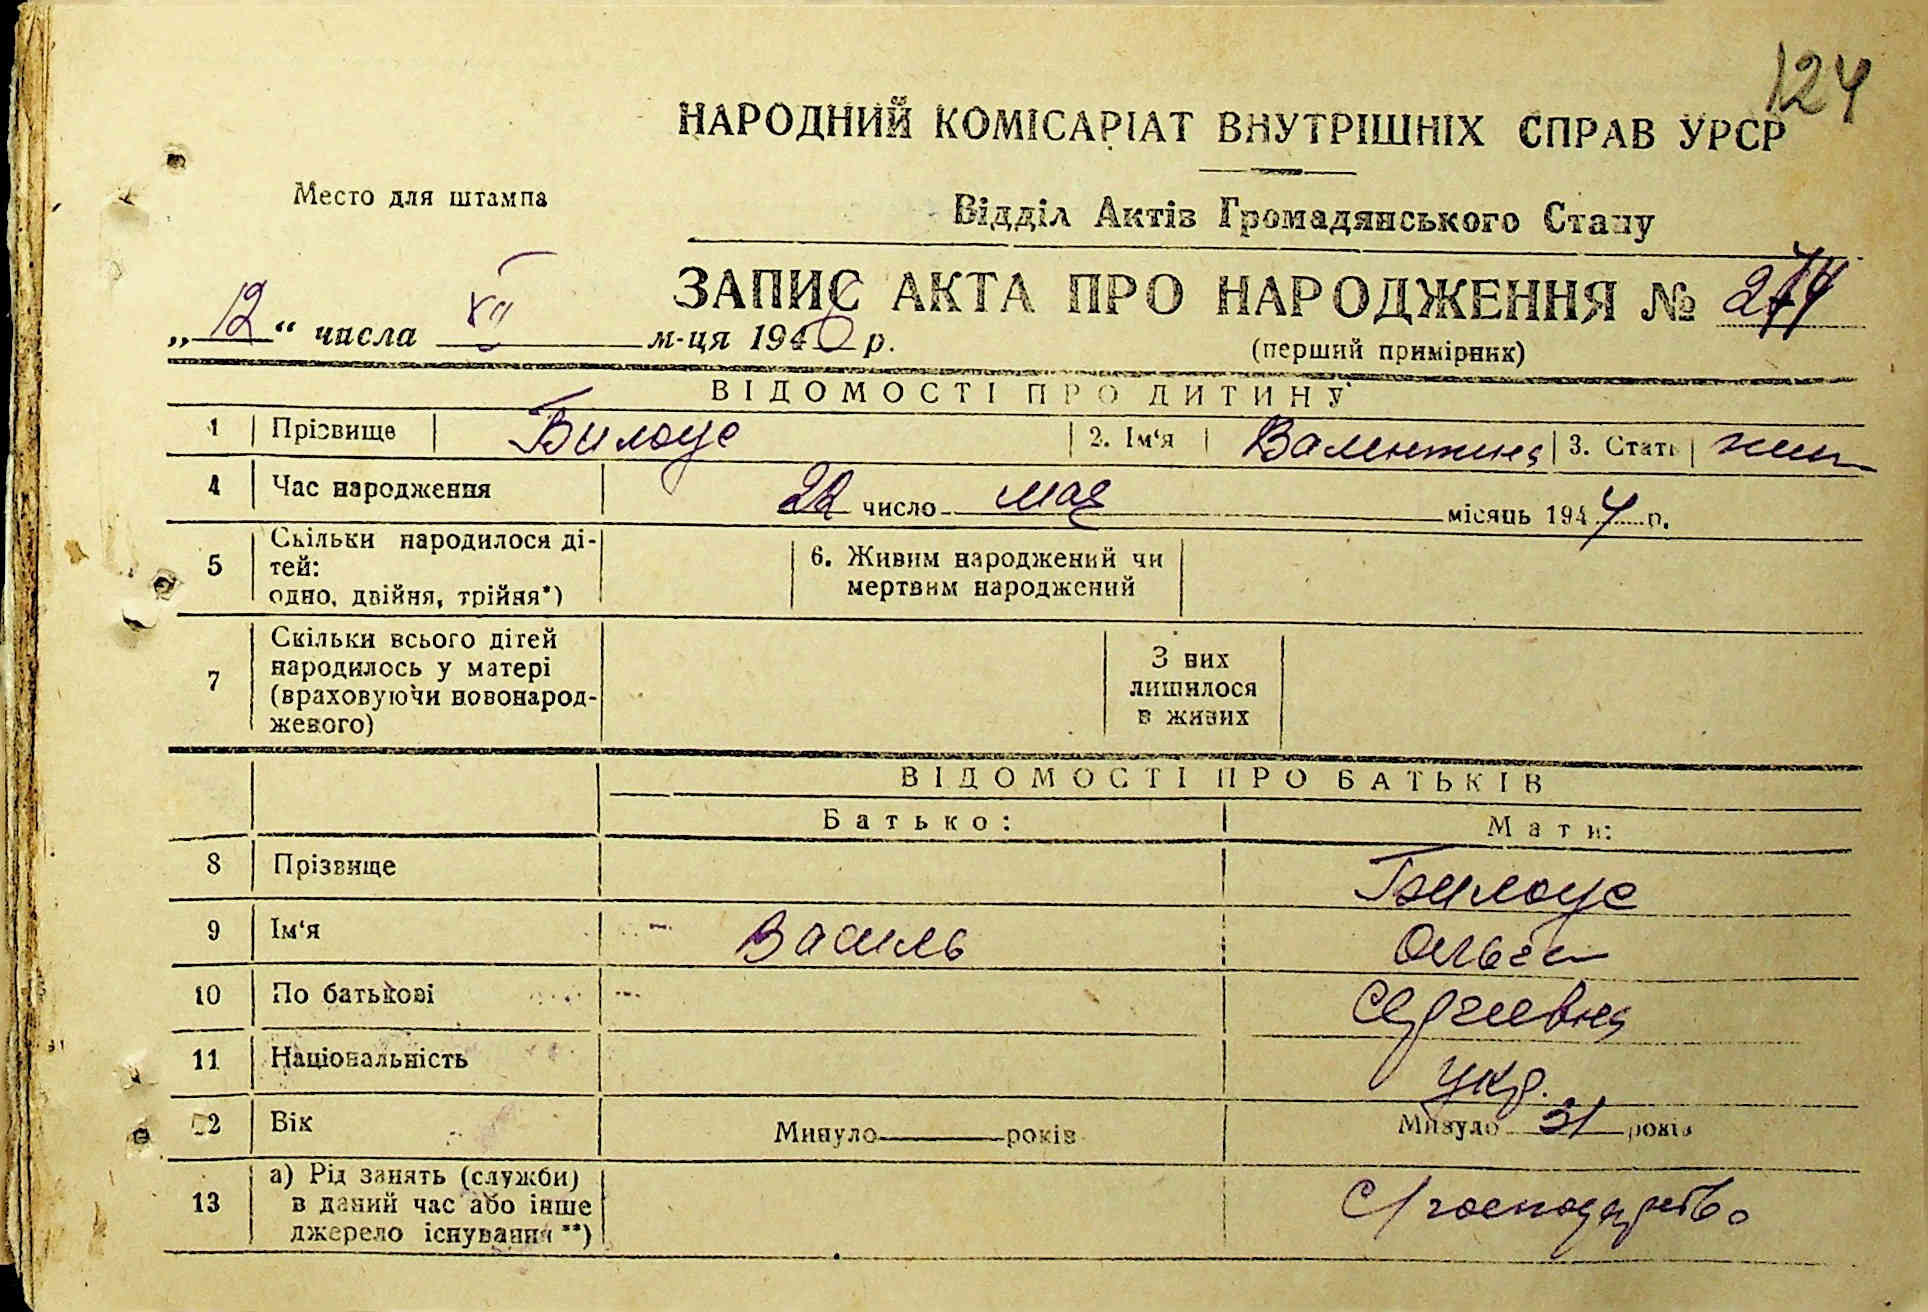 124
НАРОДНИЙ КОМІСАРІАТ ВНУТРІШНІХ СПРАВ УРСР
Место для штампа
Відділ Актів Громадянського Стану
ЗАПИС АКТА ПРО НАРОДЖЕННЯ № 274
„12“ числа XII м-ця 194 р.
(перший примірник)
ВІДОМОСТІ ПРО ДИТИНУ
1 Прізвище Билоус 2. Ім‘я Валентина 3. Стать жин
4 Час народження 22 число мая місяць 1944 р.
5 Скільки народилося ді-
тей:
одно, двійня, трійня*)
6. Живим народжений чи
мертвим народжений
7 Скільки всього дітей
народилось у матері
(враховуючи новонарод-
жевого)
З них
лишилося
в живих
ВІДОМОСТІ ПРО БАТЬКІВ
Батько: Мати:
8 Прізвище Билоус
9 Ім‘я Василь Ольга
10 По батькові Сергиевна
11 Національність укр.
12 Вік Минуло років Минуло 31 років
13 а) Рід занять (служби)
в даний час або інше
джерело існування **)
С/господарство